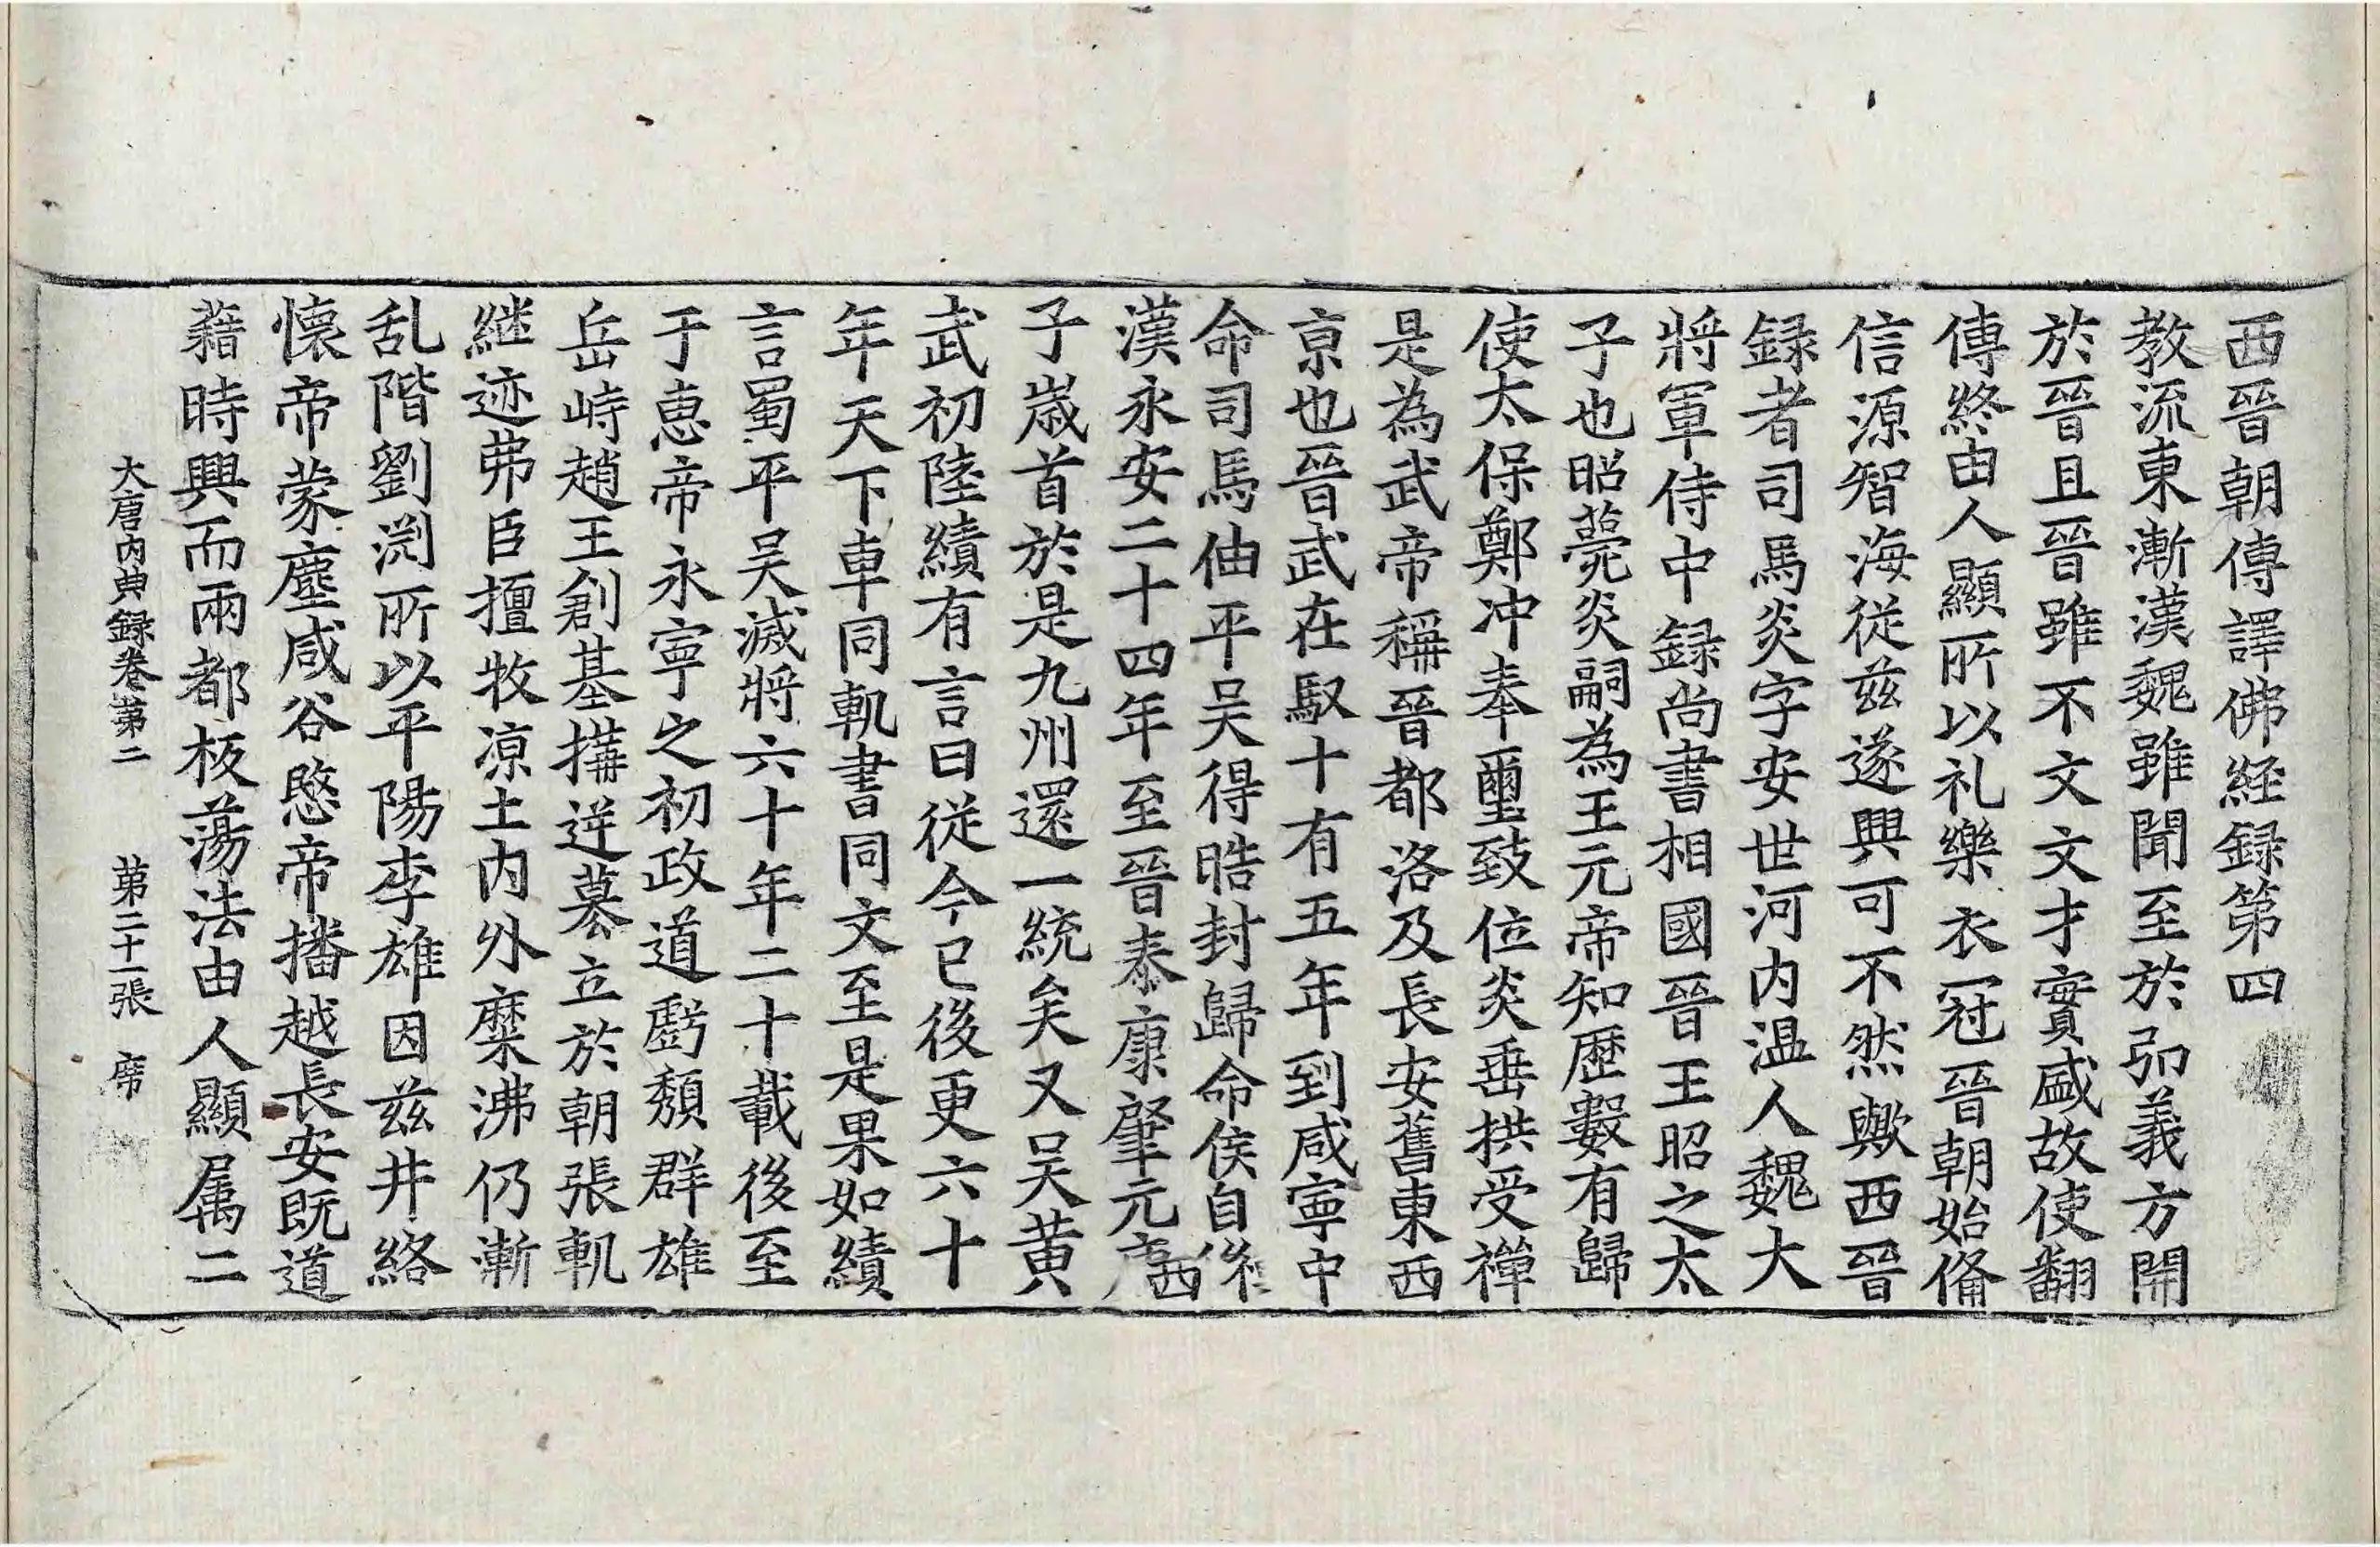 西晉朝傳譯佛経録第四
教流東漸漢魏雖聞至於弘義方開
於晉且晉雖不文文才實盛故使翻
傳終由人顯所以礼樂衣冠晉朝始備
信源智海従兹遂興可不然歟西晉
録者司馬炎字安世河内温人魏大
將軍侍中録尚書相國晉王昭之太
子也昭薨炎嗣為王元帝知歷數有歸
使太保鄭冲奉璽致位炎垂拱受禪
是為武帝稱晉都洛及長安舊東西
亰也晉武在馭十有五年到咸寧中
命司馬伷平吴得晧封歸命侯自後
漢永安二十四年至晉泰康肇元西
子嵗首於是九州還一統矣又吴黄
武初陸績有言曰従今已後更六十
年天下車同軌書同文至是果如績
言蜀平吴滅將六十年二十載後至
于惠帝永寧之初政道虧頽群雄
岳峙趙王創基搆逆慕立於朝張軌
継迹苐臣擅牧凉土内外糜沸仍漸
乱階劉渕所以平陽李雄因兹井絡
懐帝蒙塵咸谷愍帝播越長安既道
藉時興而兩都板蕩法由人顯属二
大唐内典録卷第二 第二十一張 席